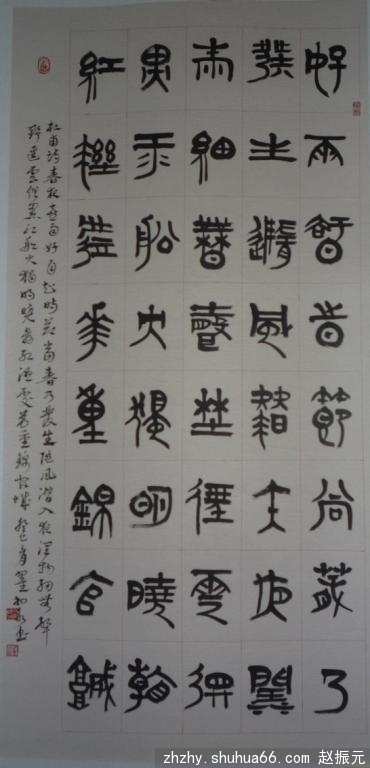 好雨知時節當春乃
發生隨風潛入夜潤
物細無聲野徑雲俱
黑江船火獨明曉看
紅濕處花重錦官城
杜甫詩春夜喜雨好雨知時節當春乃發生隨風潛入夜潤物細無聲
野徑雲俱黑江船火獨明曉看紅濕處花重錦官城癸巳
zhzhy.shuhua66.com 赵振元